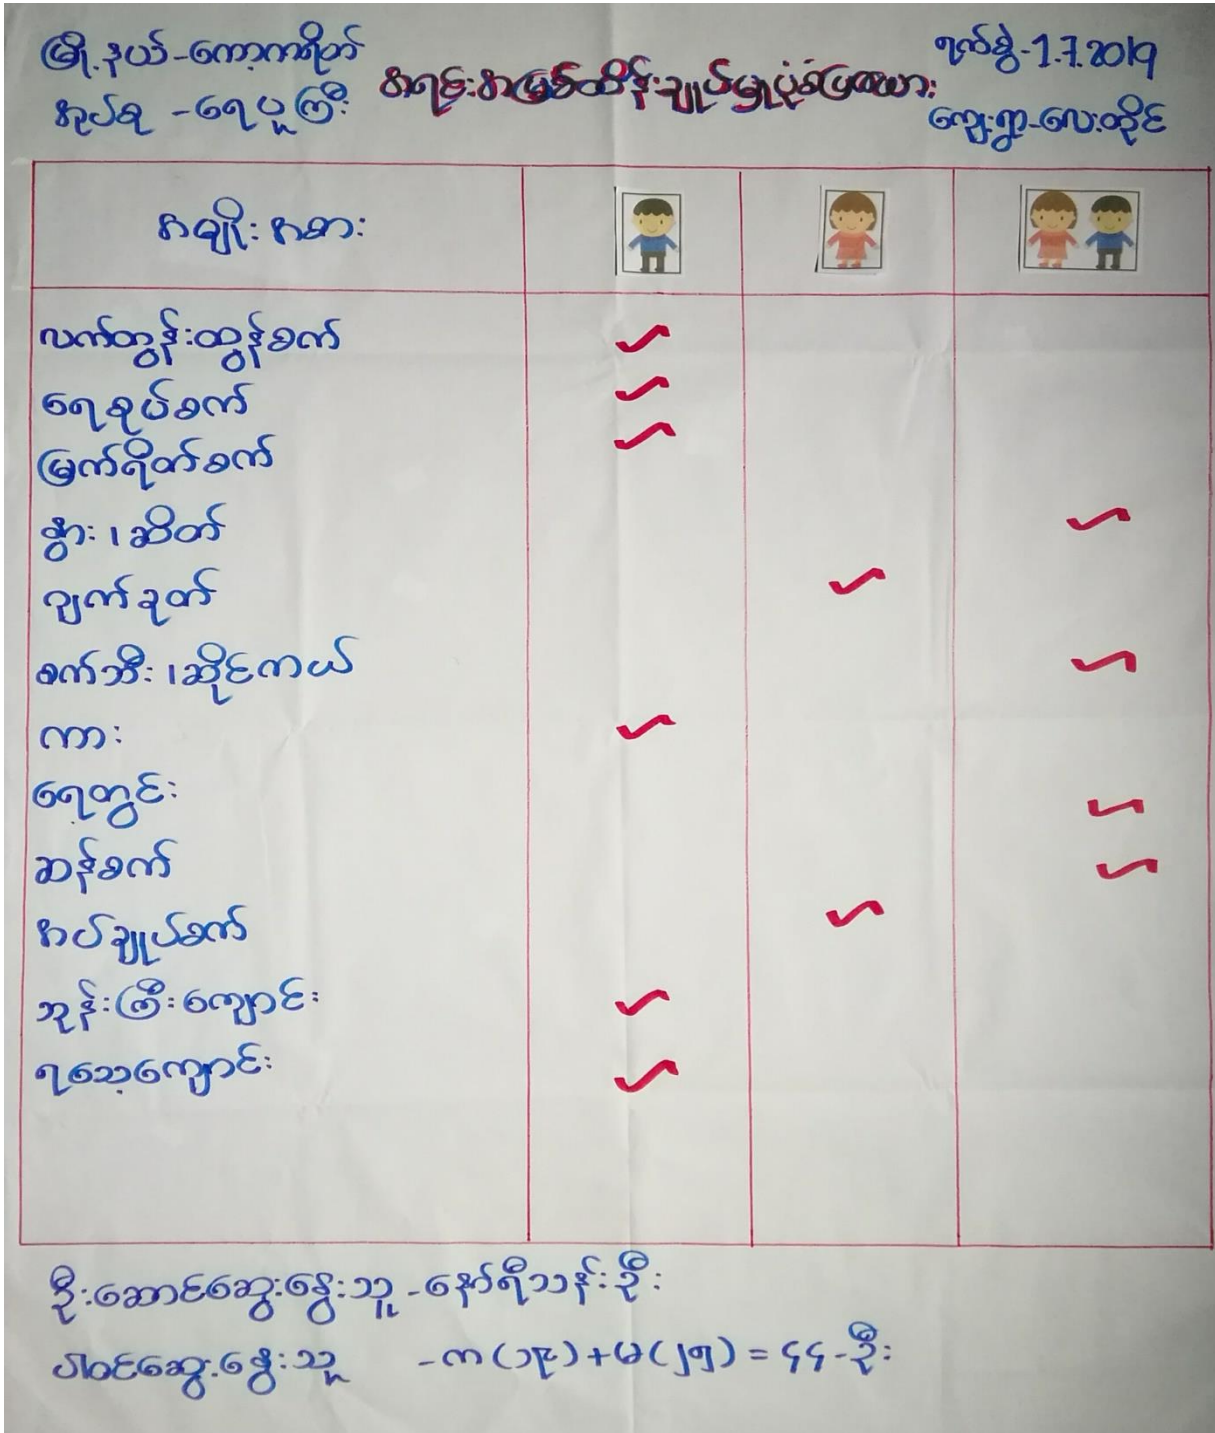 မြို့နယ်-ကော့ကရိတ်
အုပ်စု -ရေပူကြီး
အရင်းအမြစ်ထိန်းချုပ်မှုပုံစံပြဇယား
ရက်စွဲ-1.7.2019
ကျေးရွာ-လေးတိုင်
အမျိုးအစား
လက်တွန်းထွန်စက်
ရေစုပ်စက်
မြက်ရိတ်စက်
နွား၊ဆိတ်
ဂျက်ခုတ်
စက်ဘီး၊ဆိုင်ကယ်
ကား
ရေတွင်း
ဆန်စက်
အပ်ချုပ်စက်
ဘုန်းကြီးကျောင်း
ရသေ့ကျောင်း
ဦးဆောင်ဆွေးနွေးသူ -နော်ရီသန်းဦး
ပါဝင်ဆွေးနွေးသူ -က(၁၉)+မ(၂၅) = ၄၄-ဦး